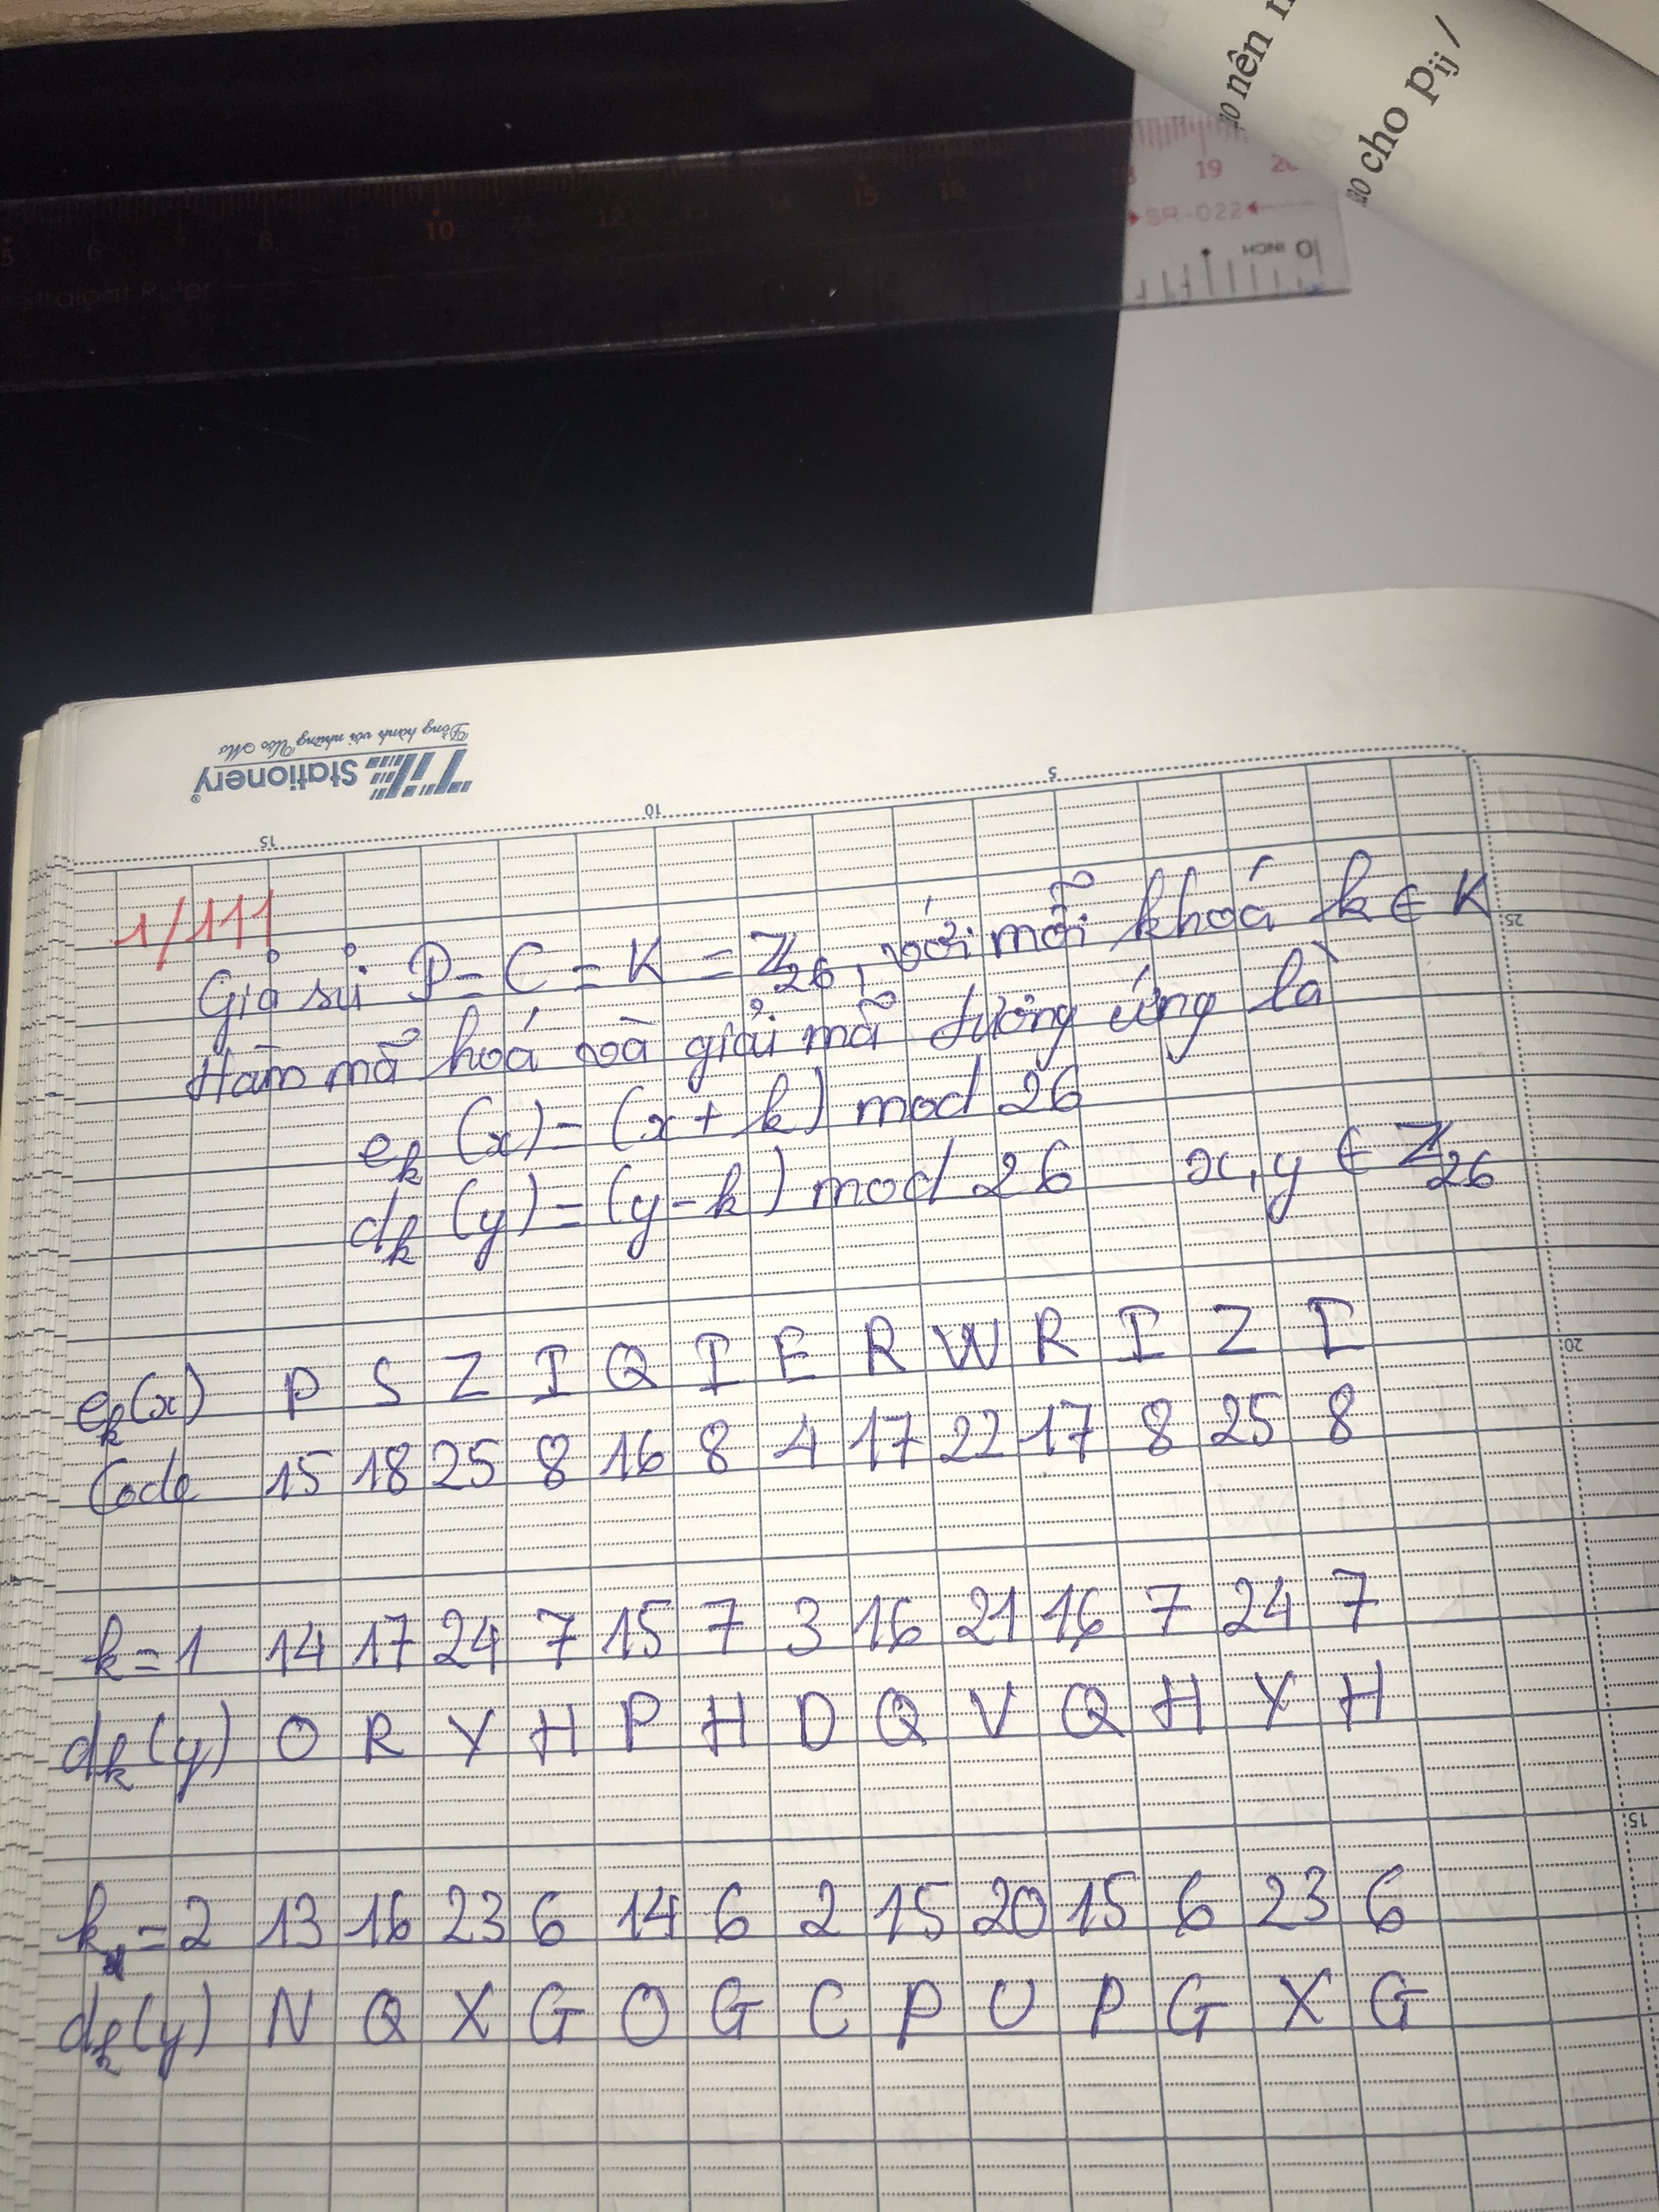 nên
cho pij /
15
16
18
19
SR-022
INCH
10
5
6
8
10
12
Straight Ruler
TL Stationery
Đồng hành với những Ước Mơ
15
10
5
25
1/111
Giả sử P = C = K = Z26, với mỗi khoá k ∈ K
Hàm mã hoá và giải mã tương ứng là
ek (x) = (x + k) mod 26
dk (y) = (y - k) mod 26 x, y ∈ Z26
20
ek(x) P S Z I Q I E R W R I Z I
Code 15 18 25 8 16 8 4 17 22 17 8 25 8
k = 1 14 17 24 7 15 7 3 16 21 16 7 24 7
dk(y) O R Y H P H D Q V Q H Y H
15
k = 2 13 16 23 6 14 6 2 15 20 15 6 23 6
dk(y) N Q X G O G C P U P G X G